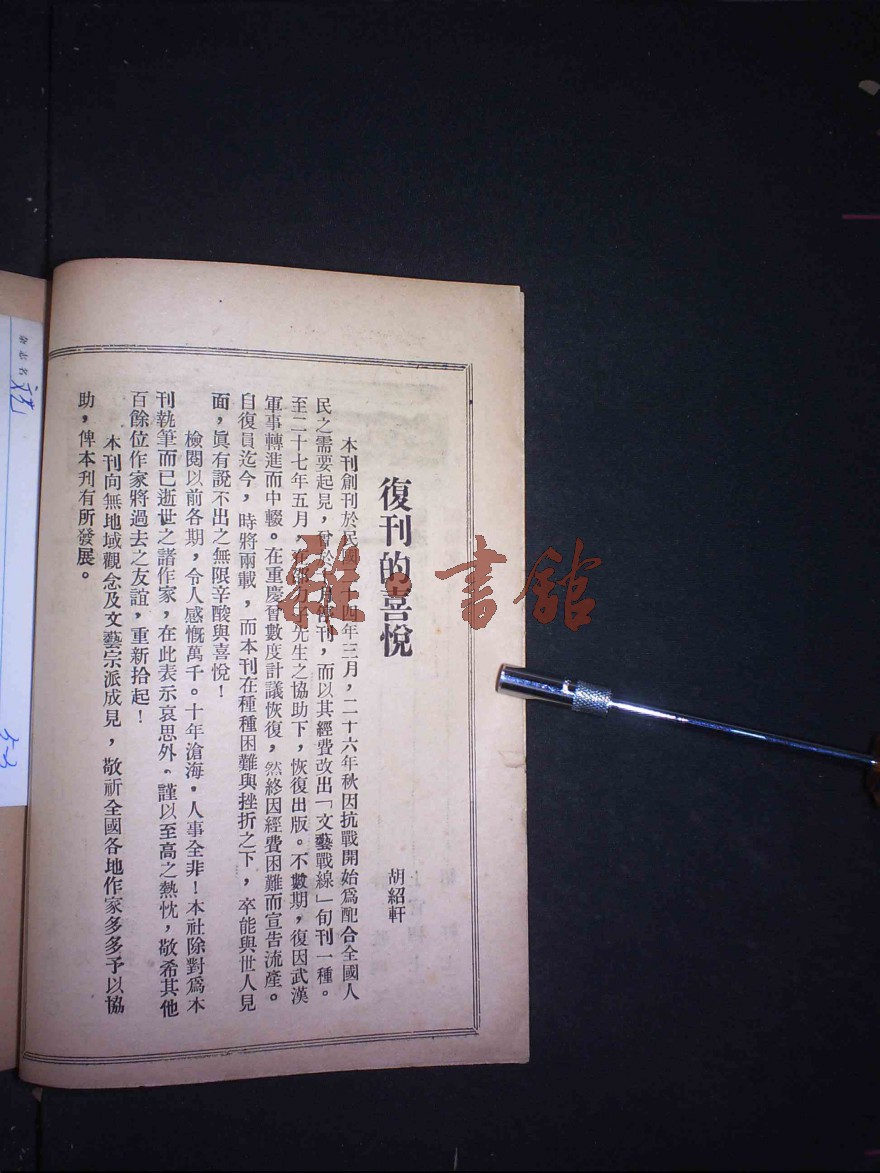 復刊的喜悅
胡紹軒
本刊創刊於民國 十四年三月,二十六年秋因抗戰開始爲配合全國人
民之需要起見,曾於 刊,而以其經費改出「文藝戰線」旬刊一種。
至二十七年五月 先生之協助下,恢復出版。不數期,復因武漢
軍事轉進而中輟。在重慶曾數度計議恢復,然終因經費困難而宣告流產。
自復員迄今,時將兩載,而本刊在種種困難與挫折之下,卒能與世人見
面,眞有說不出之無限辛酸與喜悅!
檢閱以前各期,令人感慨萬千。十年滄海,人事全非!本社除對爲本
刊執筆而已逝世之諸作家,在此表示哀思外。謹以至高之熱忱,敬希其他
百餘位作家將過去之友誼,重新拾起!
本刊向無地域觀念及文藝宗派成見,敬祈全國各地作家多多予以協
助,俾本刊有所發展。
雜·書館
文艺